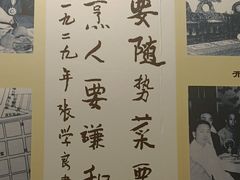 要随势菜要
烹人要谦和
一九二九年张学良书
开